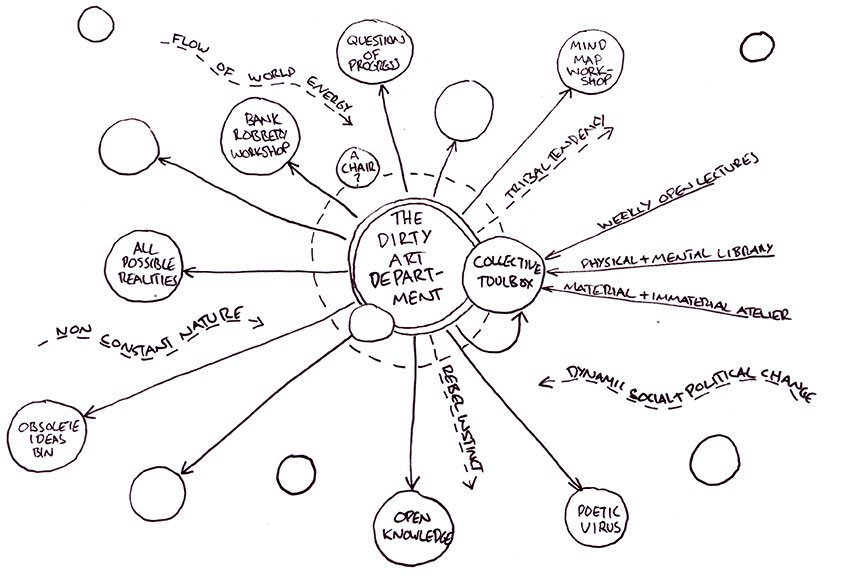 FLOW OF WORLD ENERGY
QUESTION
OF
PROGRESS
MIND
MAP
WORK-
SHOP
BANK
ROBBERY
WORKSHOP
A
CHAIR
?
TRIBAL TENDENCY
WEEKLY OPEN LECTURES
THE
DIRTY
ART
DEPART-
MENT
COLLECTIVE
TOOLBOX
PHYSICAL + MENTAL LIBRARY
MATERIAL + IMMATERIAL ATELIER
ALL
POSSIBLE
REALITIES
NON CONSTANT NATURE
DYNAMIC SOCIAL + POLITICAL CHANGE
REBEL INSTINCT
OBSOLETE
IDEAS
BIN
OPEN
KNOWLEDGE
POETIC
VIRUS